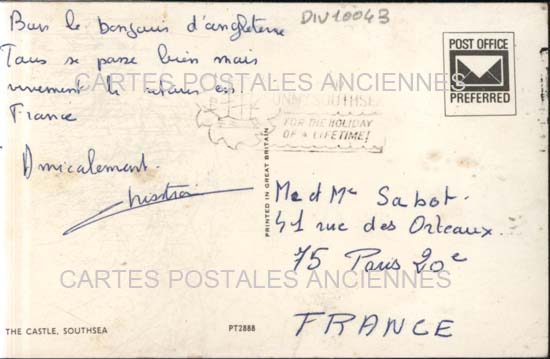 DIV10043
Bons le bonjours d'angleterre
Tous se passe bien mais
vivement le retour en
France
Amicalement.
POST OFFICE
PREFERRED
CARTES POSTALES ANCIENNES
SUNNY SOUTHSEA
FOR THE HOLIDAY
OF A LIFETIME!
PRINTED IN GREAT BRITAIN
Me et Mr Sabot.
41 rue des Orteaux.
75 Paris 20e
CARTES POSTALES ANCIENNES
FRANCE
THE CASTLE, SOUTHSEA
PT2888